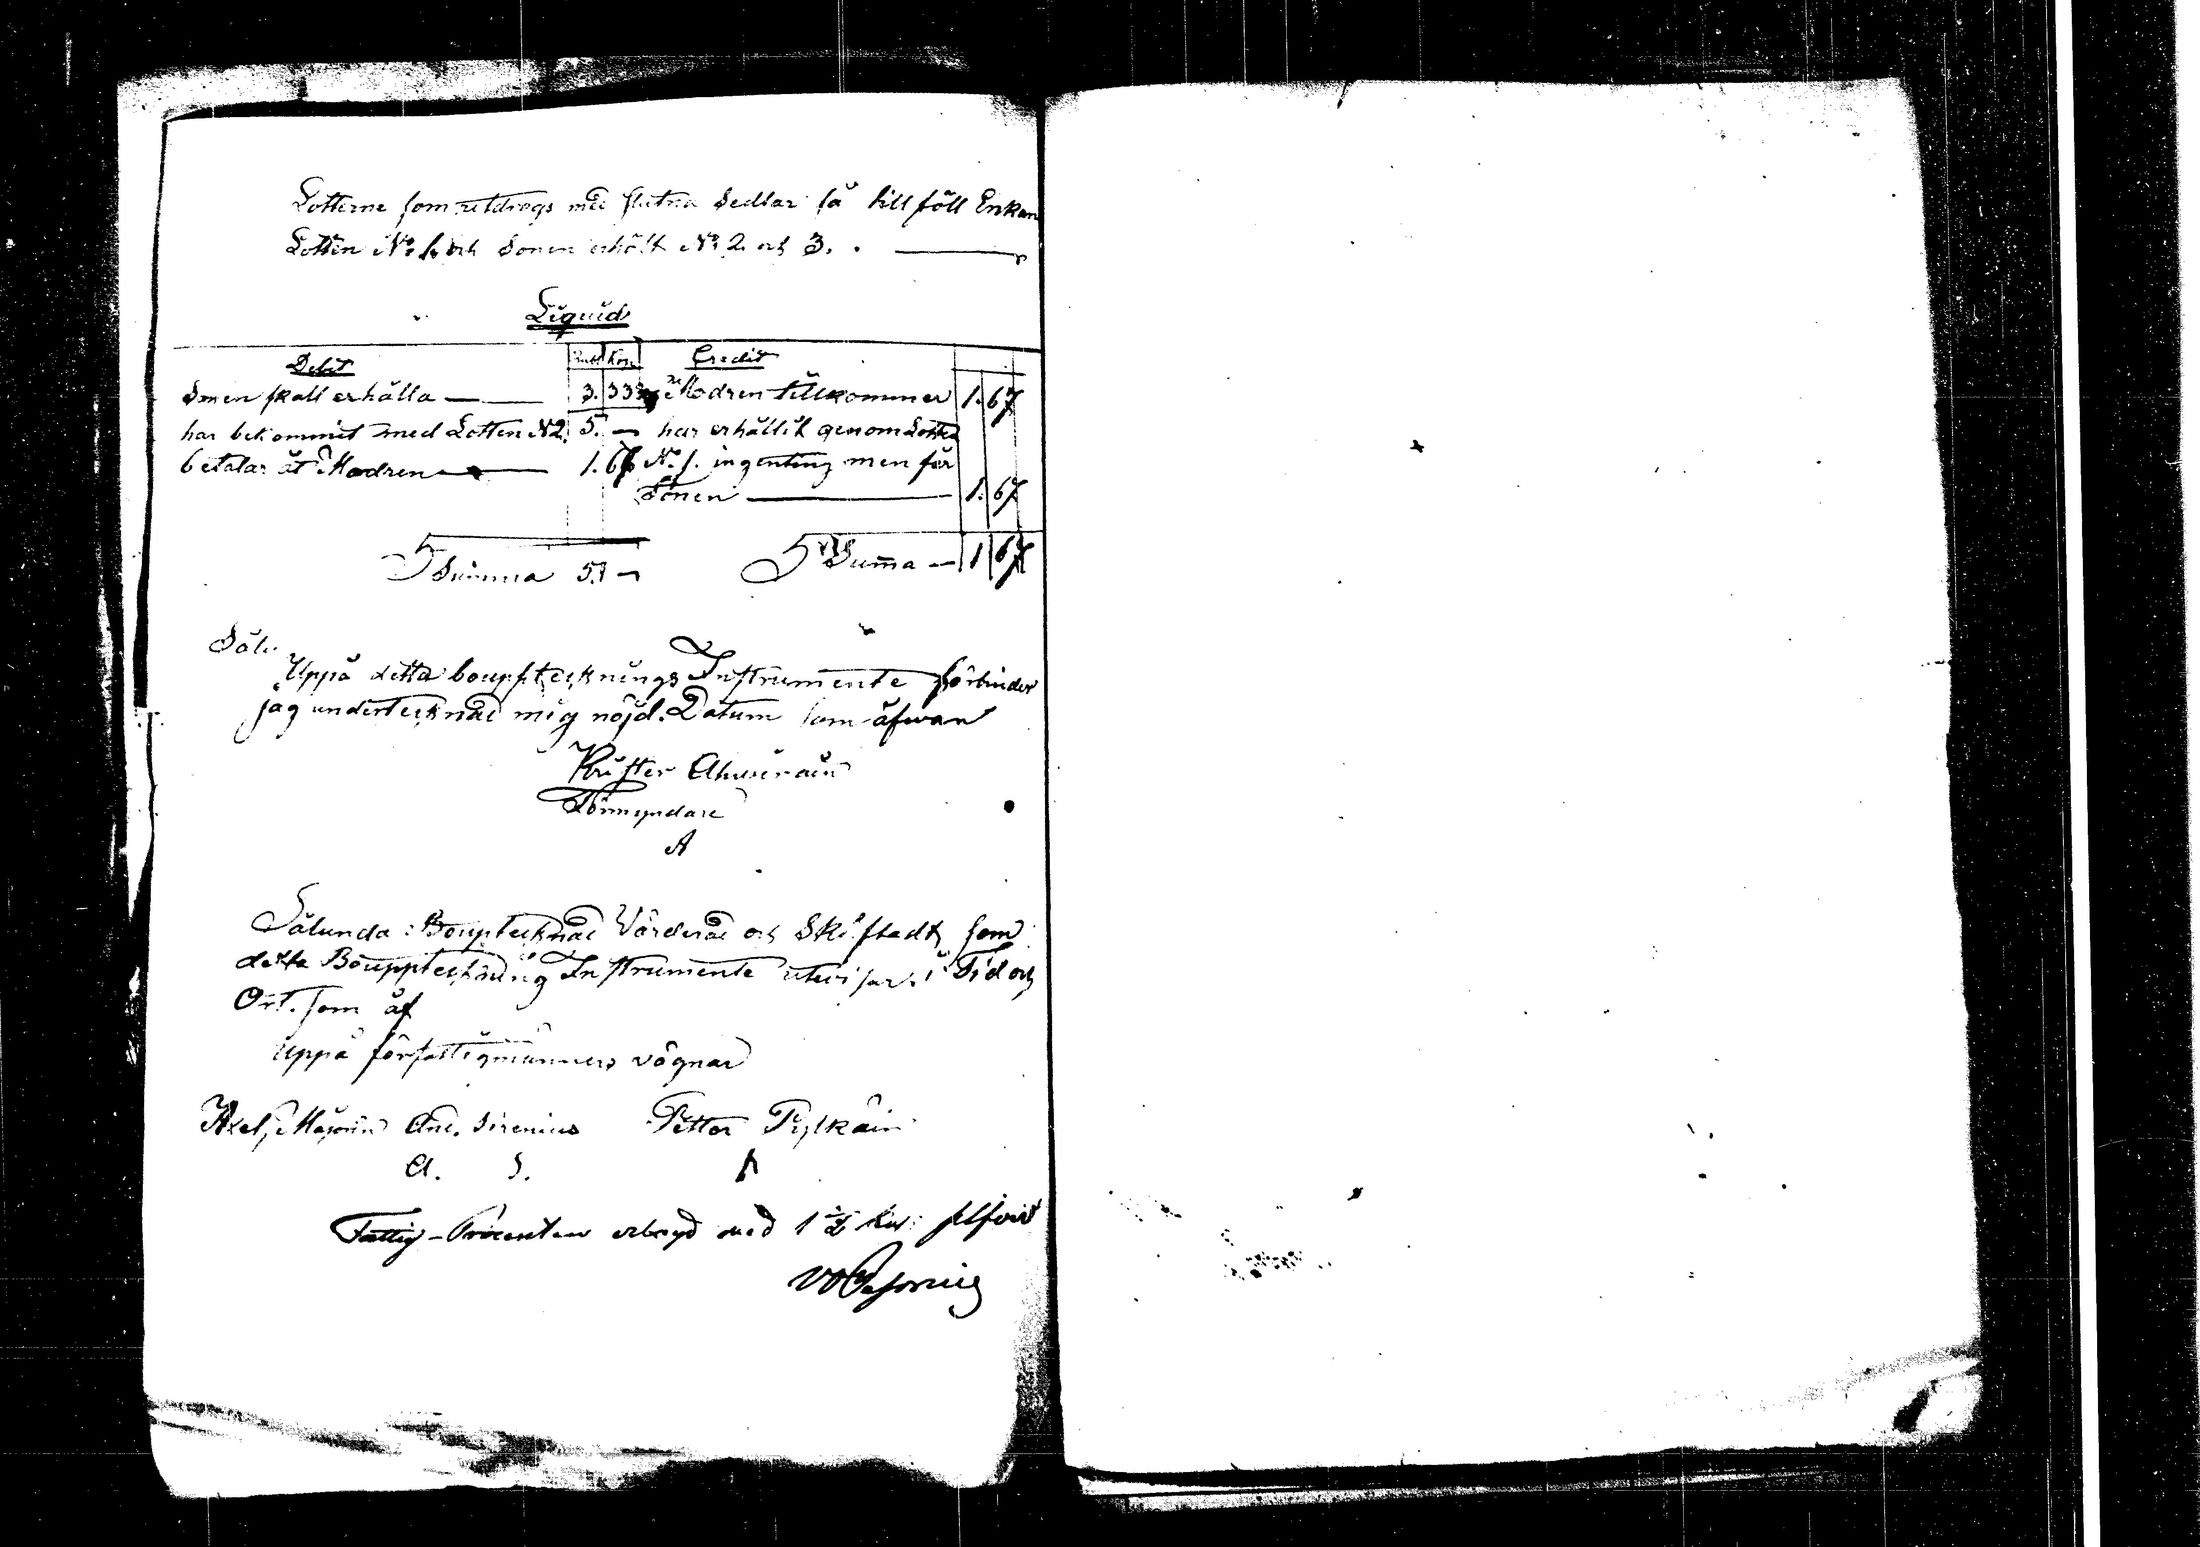 Lotterne som utdrogs med slutna Sedlar så tillföll Enkan
Lotten No. 1. och Sonen erhölt No. 2 och 3.
Liquid
Debet Rub. Kop. Credit
Sonen skall erhålla — 3. 33 Modren tillkommer 1. 67
har bekommit med Lotten N2. 5. — har erhållit genom Lotten
betalar åt Modren — 1. 67 No. 1. ingenting men får
Sonen — 1. 67
Summa 5. — Summa — 1 67
Uppå detta boupptecknings Instrumente förbinder
jag undertecknad mig nöjd. Datum som åfwan
Krister
Förmyndare
A
Sålunda Bouptecknad Värderad och Skiftadt, som
detta Bouppteckning Instrumente utvisar. i Tid och
Ort. som åf
Uppå författigmänners vägnar
Axel And. Sirenius Petter Pylkäin
A. S.
Fattig-Procenten med 1 1/2 Kop: silfver